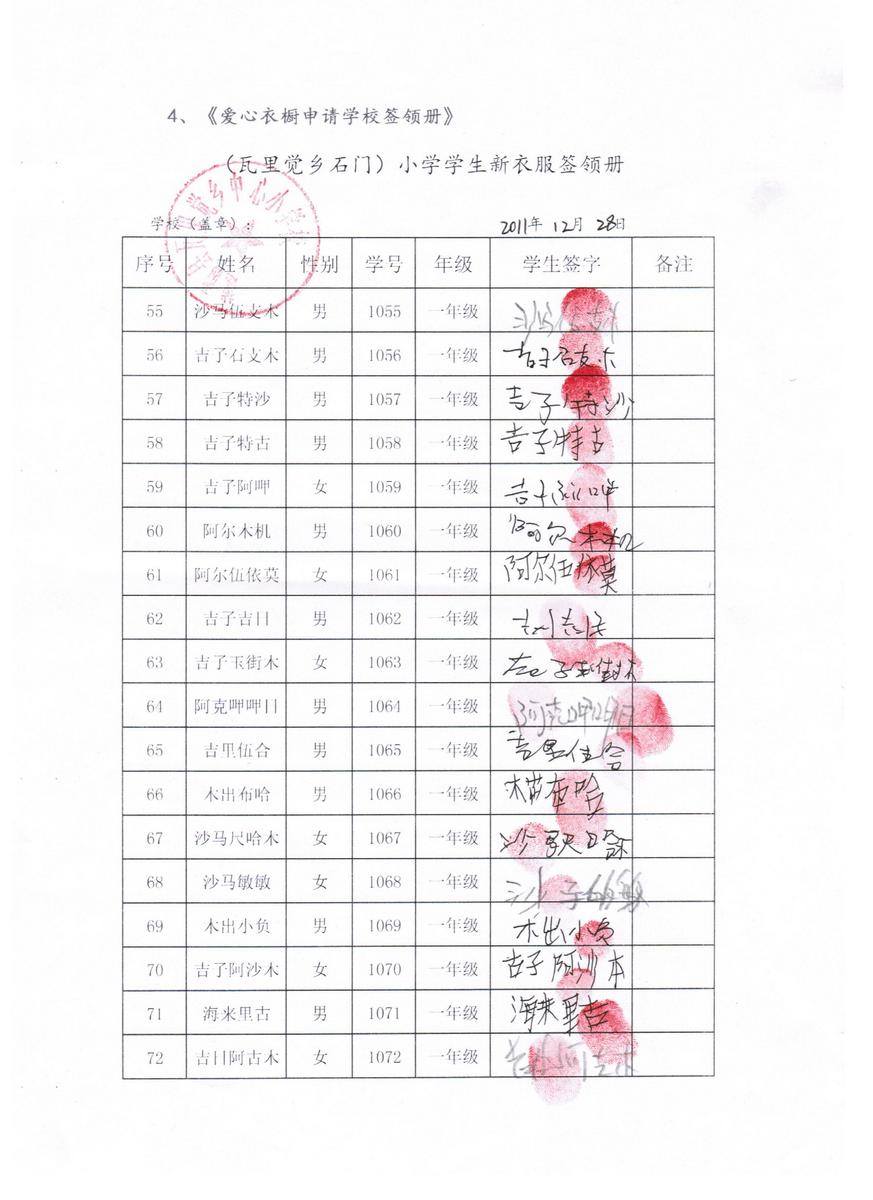 4、《爱心衣橱申请学校签领册》
（瓦里觉乡石门）小学学生新衣服签领册
学校（盖章）： 2011年 12月 28日
序号 姓名 性别 学号 年级 学生签字 备注
55 沙马伍支木 男 1055 一年级
56 吉子石支木 男 1056 一年级 吉子石支木
57 吉子特沙 男 1057 一年级 吉子特沙
58 吉子特古 男 1058 一年级 吉子特古
59 吉子阿呷 女 1059 一年级
60 阿尔木机 男 1060 一年级 阿尔木机
61 阿尔伍依莫 女 1061 一年级 阿尔伍依莫
62 吉子吉日 男 1062 一年级
63 吉子玉街木 女 1063 一年级
64 阿克呷呷日 男 1064 一年级 阿克呷呷日
65 吉里伍合 男 1065 一年级
66 木出布哈 男 1066 一年级
67 沙马尺哈木 女 1067 一年级
68 沙马敏敏 女 1068 一年级
69 木出小负 男 1069 一年级 木出小负
70 吉子阿沙木 女 1070 一年级 吉子阿沙本
71 海来里古 男 1071 一年级 海来里吉
72 吉日阿古木 女 1072 一年级